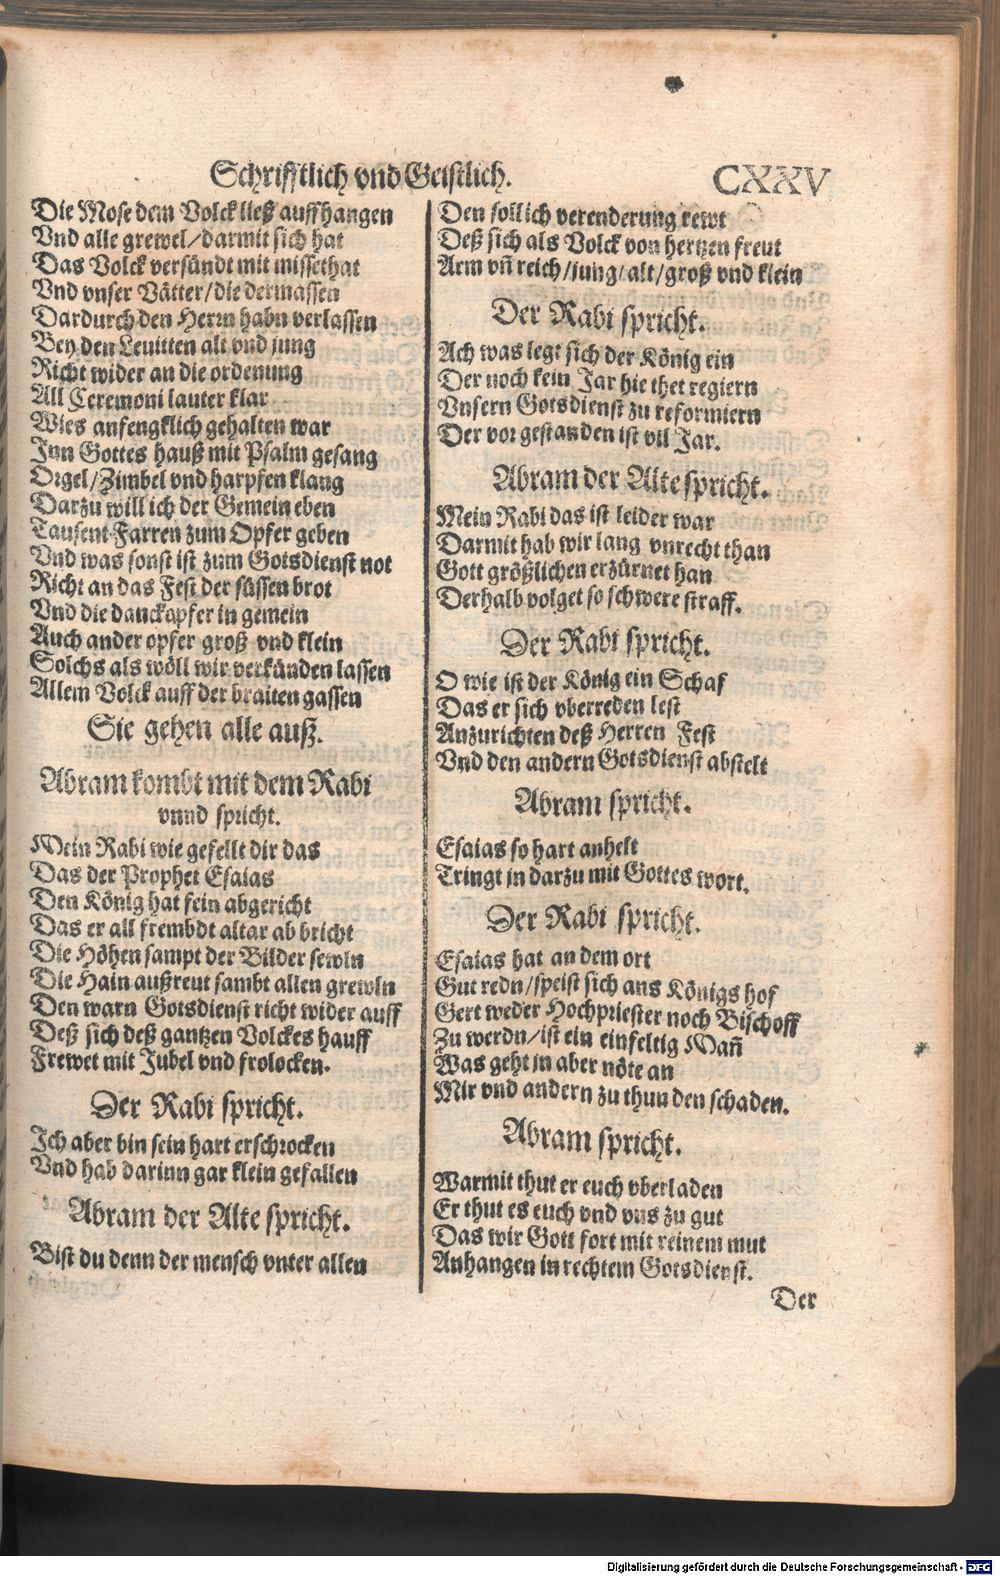 Schrifftlich vnd Geistlich. CXXV
Die Mose dem Volck ließ auffhangen
Vnd alle grewel/darmit sich hat
Das Volck versündt mit missethat
Vnd vnser Vätter/die dermassen
Dardurch den Herrn habn verlassen
Bey den Leuitten alt vnd jung
Richt wider an die ordenung
All Ceremoni lauter klar
Wies anfengklich gehalten war
Inn Gottes hauß mit Psalm gesang
Orgel/Zimbel vnd harpfen klang
Darzu will ich der Gemein eben
Tausent Farren zum Opfer geben
Vnd was sonst ist zum Gotsdienst not
Richt an das Fest der süssen brot
Vnd die danckopfer in gemein
Auch ander opfer groß vnd klein
Solchs als wöll wir verkünden lassen
Allem Volck auff der braiten gassen
Sie gehen alle auß.
Abram kombt mit dem Rabi
vnnd spricht.
Mein Rabi wie gefellt dir das
Das der Prophet Esaias
Den König hat fein abgericht
Das er all frembdt altar ab bricht
Die Höhen sampt der Bilder sewln
Die Hain außreut sambt allen grewln
Den warn Gotsdienst richt wider auff
Deß sich deß gantzen Volckes hauff
Frewet mit Jubel vnd frolocken.
Der Rabi spricht.
Ich aber bin sein hart erschrocken
Vnd hab darinn gar klein gefallen
Abram der Alte spricht.
Bist du denn der mensch vnter allen
Den sollich verenderung rewt
Deß sich als Volck von hertzen freut
Arm vñ reich/jung/alt/groß vnd klein
Der Rabi spricht.
Ach was legt sich der König ein
Der noch kein Jar hie thet regiern
Vnsern Gotsdienst zu reformiern
Der vor gestanden ist vil Jar.
Abram der Alte spricht.
Mein Rabi das ist leider war
Darmit hab wir lang vnrecht than
Gott größlichen erzürnet han
Derhalb volget so schwere straff.
Der Rabi spricht.
O wie ist der König ein Schaf
Das er sich vberreden lest
Anzurichten deß Herren Fest
Vnd den andern Gotsdienst abstelt
Abram spricht.
Esaias so hart anhelt
Tringt in darzu mit Gottes wort.
Der Rabi spricht.
Esaias hat an dem ort
Gut redn/speist sich ans Königs hof
Gert weder Hochpriester noch Bischoff
Zu werdn/ist ein einfeltig Mañ
Was geht in aber nöte an
Mir vnd andern zu thun den schaden.
Abram spricht.
Warmit thut er euch vberladen
Er thut es euch vnd vns zu gut
Das wir Gott fort mit reinem mut
Anhangen in rechtem Gotsdienst.
Der
Digitalisierung gefördert durch die Deutsche Forschungsgemeinschaft - DFG